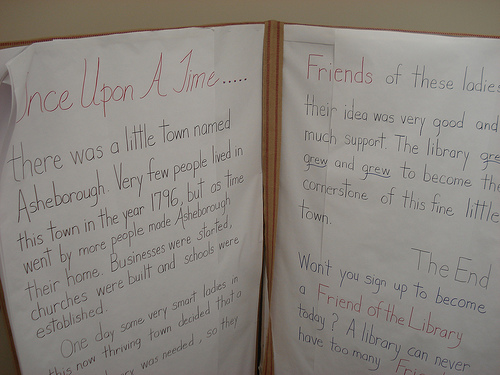 Once Upon A Time.....
there was a little town named
Asheborough. Very few people lived in
this town in the year 1796, but as time
went by more people made Asheborough
their home. Businesses were started,
churches were built and schools were
established.
One day some very smart ladies in
this now thriving town decided that a
was needed, so they
Friends of these ladies
their idea was very good and
much support. The library
grew and grew to become
cornerstone of this fine little
town.
The End
Won't you sign up to become
a Friend of the Library
today? A library can never
have too many